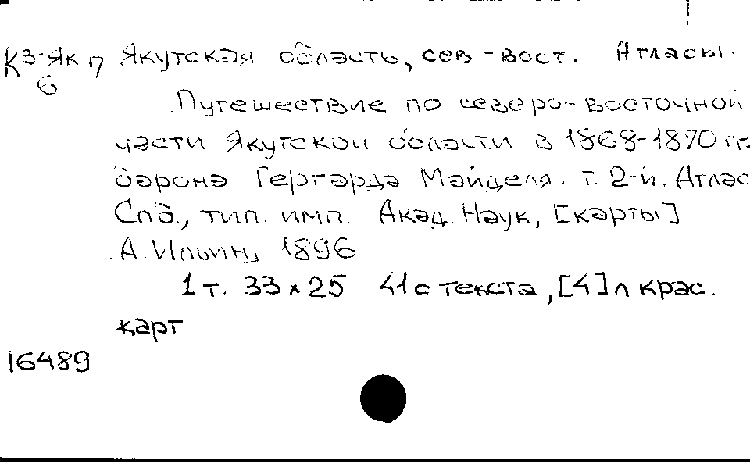 К3-Як п Якутская область, сев-вост. Атласы.
6
Путешествие по северо-восточной
части Якутской области в 1868-1870 гг.
барона Гергарда Майделя. т. 2-й. Атлас
Спб., тип. имп. Акад. Наук, [карты]
А. Ильин, 1896
1 т. 33 x 25 41 с текста, [4] л крас.
карт
16489